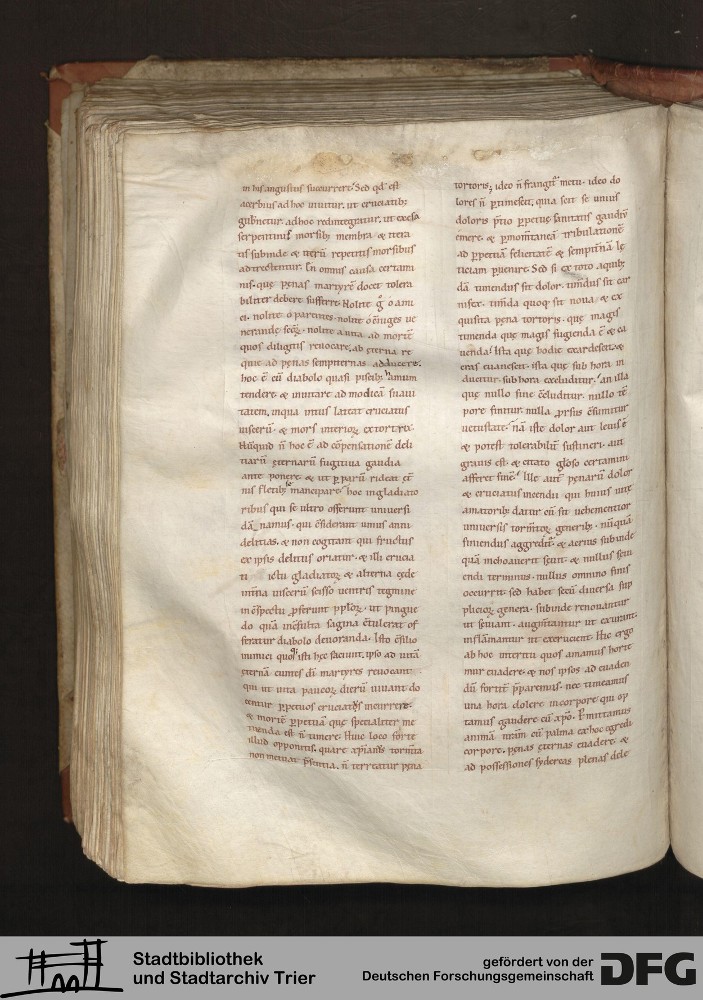 in his angustiis succurrere. Sed qđ est
acerbius ad hoc
adhoc redintegratur, ut excesa
serpentinis morsib; membra & itera
tis subinde & iterū repetitis morsibus
ad In omnis causa certami
nis. quę pęnas martyrē docet tolera
biliter debere sufferre. Nolite g̊ o ami
ci. nolite o parentes. nolite o ūiuges ue
nerandę nolite ad mortē
quos diligitis reuocare, ab ęterna re
quie ad pęnas sempiternas adducere.
hoc ē cū diabolo quasi piscib; hamum
tendere & inuitare ad modicā suaui
tatem. in qua intus lateat cruciatus
uiscerū. & mors
Nūquid ñ hoc ē ad cōpensationē deli
tiarū ęternarū fugitiua gaudia
ante ponere & ut p parū rideat
mancipare. hoc in gladiato
ribus qui se ultro offerunt uniuersi
dānamus. qui cōsiderant unius anni
delitias. & non cogitant qui fructus
ex ipsis delitiis oriatur. & illi crucia
ti ictu gladiatorꝫ & alterna cęde
scisso uentris tegmine
in cōspectu ut pingue
do quā incōsulta sagina cōtulerat of
feratur diabolo deuoranda. Isto cōsilio
inimici isti hęc faciunt. ipso ad uitā
ęternā euntes dī martyres reuocant.
qui ut uita paucorꝫ dierū uiuant do
centur ppetuos cruciatus incurrere.
& mortē ppetuā quę specialiter me
tuenda est ñ timere. Huic loco forte
illud opponitis. quare xp̄ianus tormēta
non metuat ñ terreatur pęna
tortoris; ideo ñ frangit̃ metu. ideo do
lores ñ ptimescit, quia scit se unius
doloris p̄tio ppetuę sanitatis gaudiū
emere & p momītaneā tribulationē
ad ppetuā felicitatē & sempit̃nā lę
ticiam puenire. Sed si ex toto a quib;
dā timendus sit dolor. timēdus sit car
nifex. timēda quoq; sit noua & ex
quisita pęna tortoris. quę magis
timenda quę magis fugienda ē & ca
uenda? Ista quę hodie exardescit. &
cras euanescit. ista quę sub hora in
ducitur. sub hora excluditur. an illa
quę nullo fine cōcluditur. nullo tē
pore finitur. nulla prsus cōsumitur
uetustate. nā iste dolor aut leuis ē
& potest tolerabiliꝰ sustineri. aut
grauis est. & citato gl̃oso certamini
afferet finē. Ille aut̃ pęnarū dolor
& cruciatus incendii qui huius uitę
amatorib; datur cū sit uehementior
uniuersis tormētorꝫ generib;. nūquā
finiendus aggredit̃. & acrius subinde
quā inchoauerit sęuit. & nullus sęui
endi terminus. nullus omnino finis
occurrit. sed habet secū diuersa sup
pliciorꝫ genera. subinde renouantur
ut seuiant. augmītantur ut exurant.
inflāmantur ut excrucient. Hic ergo
ab hoc interitu quos amamus horte
mur euadere. & nos ipsos ad euaden
dū fortit̃ p̄paremus. nec timeamus
una hora dolere in corpore qui op
tamus gaudere cū xp̄o. Pmittamus
animā nr̄am cū palma ex hoc egredi
corpore. pęnas ęternas euadere &
ad possessiones sydereas plenas dele
Stadtbibliothek
und Stadtarchiv Trier
gefördert von der
Deutschen Forschungsgemeinschaft
DFG